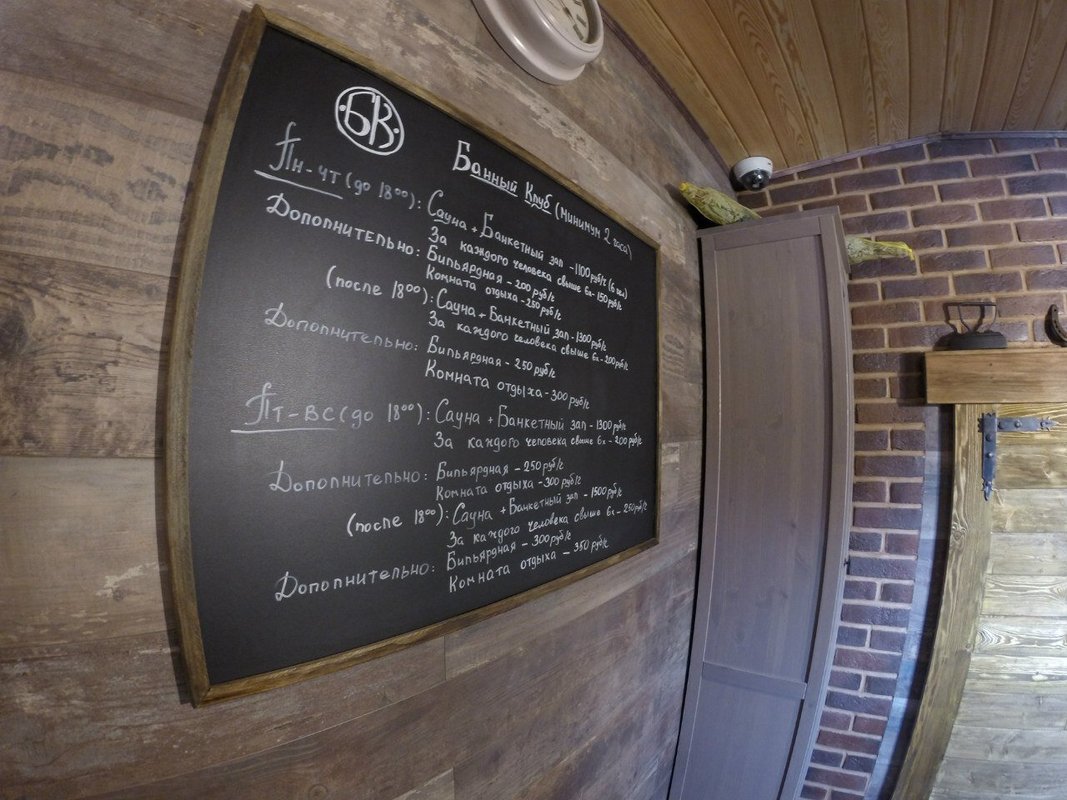 БК
Банный Клуб (минимум 2 часа)
Пн-Чт (до 18⁰⁰): Сауна + Банкетный зал - 1100 руб/г (6 чел)
За каждого человека свыше 6х - 150 руб/г
Дополнительно: Бильярдная - 200 руб/г
Комната отдыха - 250 руб/г
(после 18⁰⁰): Сауна + Банкетный зал - 1300 руб/г
За каждого человека свыше 6х - 200 руб/г
Дополнительно: Бильярдная - 250 руб/г
Комната отдыха - 300 руб/г
Пт-Вс (до 18⁰⁰): Сауна + Банкетный зал - 1300 руб/г
За каждого человека свыше 6х - 200 руб/г
Дополнительно: Бильярдная - 250 руб/г
Комната отдыха - 300 руб/г
(после 18⁰⁰): Сауна + Банкетный зал - 1500 руб/г
За каждого человека свыше 6х - 250 руб/г
Бильярдная - 300 руб/г
Дополнительно: Комната отдыха - 350 руб/г